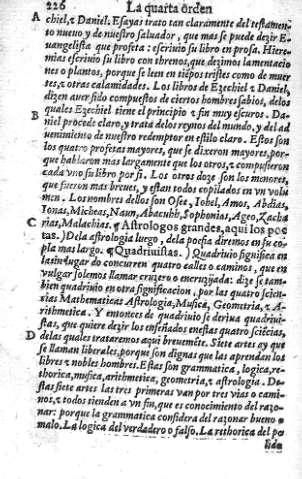 226 La quarta orden
A chiel, ⁊ Daniel. Esayas trato tan claramente del testamen-
to nueuo y de nuestro saluador, que mas se puede dezir E-
uangelista que profeta: escriuio su libro en prosa. Hiere-
mias escriuio su libro con threnos, que dezimos lamentacio
nes o plantos, porque se leen en tiẽpos tristes como de muer
tes, ⁊ otras calamidades. Los libros de Ezechiel ⁊ Daniel,
dizen auer sido compuestos de ciertos hombres sabios, delos
B quales Ezechiel tiene el principio ⁊ fin muy escuros. Da-
niel procede claro, y trata delos reynos del mundo, y del ad
uenimiento de nuestro redemptor en estilo claro. Estos son
los quatro profetas mayores, que se dixeron mayores, por-
que hablaron mas largamente que los otros, ⁊ compusieron
cada vno su libro por si. Los otros doze son los menores,
que fueron mas breues, y estan todos copilados en vn volu
men. Los nombres dellos son Osee, Iohel, Amos, Abdias,
Ionas, Micheas, Naun, Abacuhc, Sophonias, Ageo, Zacha
C rias, Malachias. ¶ Astrologos grandes, aqui los poe
tas.) Dela astrologia luego, dela poesia diremos en su co-
pla mas largo. ¶ Quadruuistas.) Quadriuio significa en
latin lugar do concurren quatro calles o caminos, que en
vulgar solemos llamar cruzero o encruzijada: dize se tam-
bien quadriuio en otra significacion, por las quatro scien-
sias Mathematicas Astrologia, Musica, Geometria, ⁊ A-
rithmetica. Y entonces de quadriuio se deriua quadriui-
stas, que quiere dezir los enseñados enestas quatro sciẽcias,
D delas quales trataremos aqui breuemẽte. Siete artes ay que
se llaman liberales, porque son dignas que las aprendan los
libres ⁊ nobles hombres. Estas son grammatica, logica, re-
thorica, musica, arithmetica, geometria, ⁊ astrologia. De-
stas siete artes las tres primeras van por tres vias o cami-
nos, ⁊ todos tienden a vn fin, que es conocimiento del razo-
nar: porque la grammatica considera del razonar bueno o
malo. La logica del verdadero o falso. La rethorica del pe